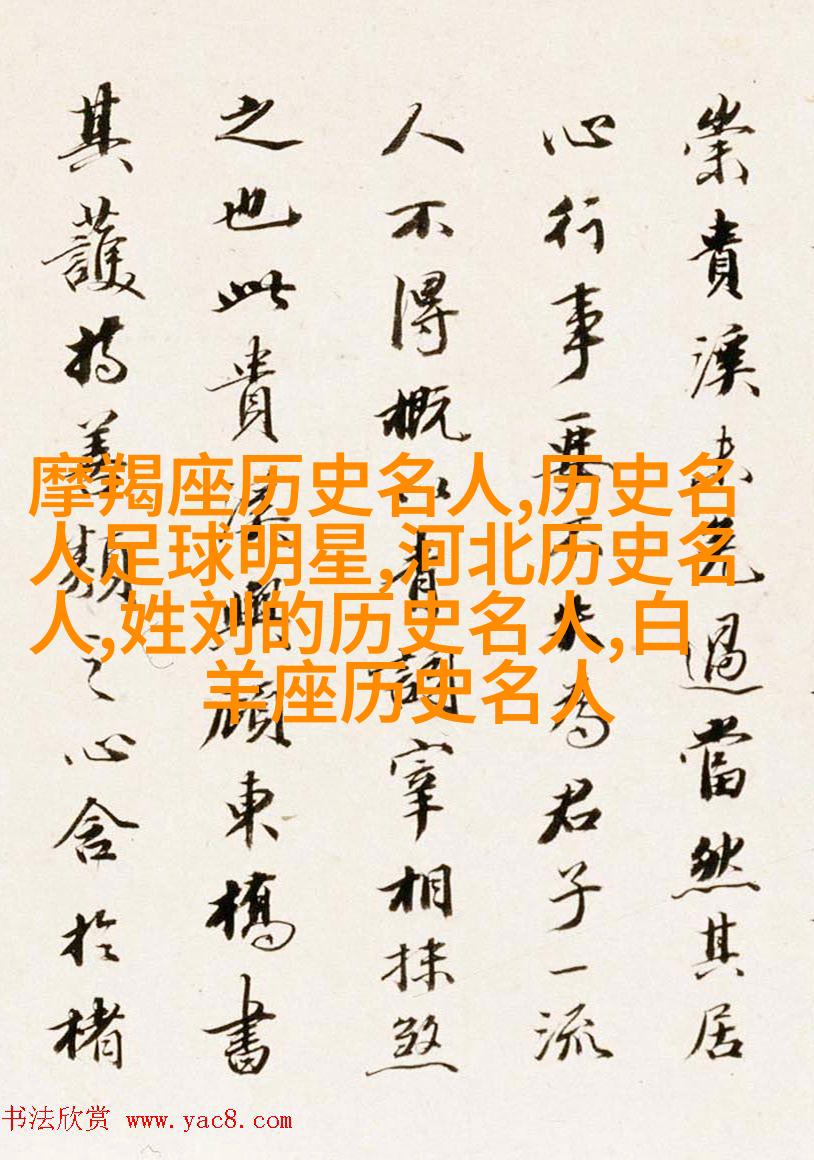 崇貴溪未免過當然其居
心行事要不失為君子一流
人不得概以青詞宰相抹煞
之也此貴溪與顧東橋書
其護持善類之心含於楮
摩羯座历史名人,历史名
人足球明星,河北历史名
人,姓刘的历史名人,白
羊座历史名人
书法欣赏 www.yac8.com